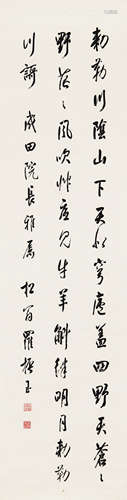 勅勒川陰山下天似穹廬蓋四野天蒼〻
野茫〻風吹艸底見牛羊斛律明月勅勒
川謌 成田院長雅屬 松翁羅振玉